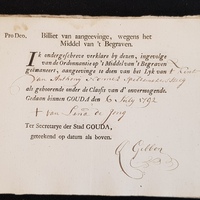 Pro Deo.
Billiet van aangeevinge, wegens het
Middel van 't Begraven.
IK ondergeschreve verklare by dezen, ingevolge
van de Ordonnantie op 't Middel van 't Begraven
geëmaneert, aangevinge te doen van het Lyk van 't Kint
van
als gehoorende onder de Classis van d' onvermogende.
Gedaan binnen GOUDA den 6 July 1792
t van de Jong
Ter Secretarye der Stad GOUDA,
geteekend op datum als boven.